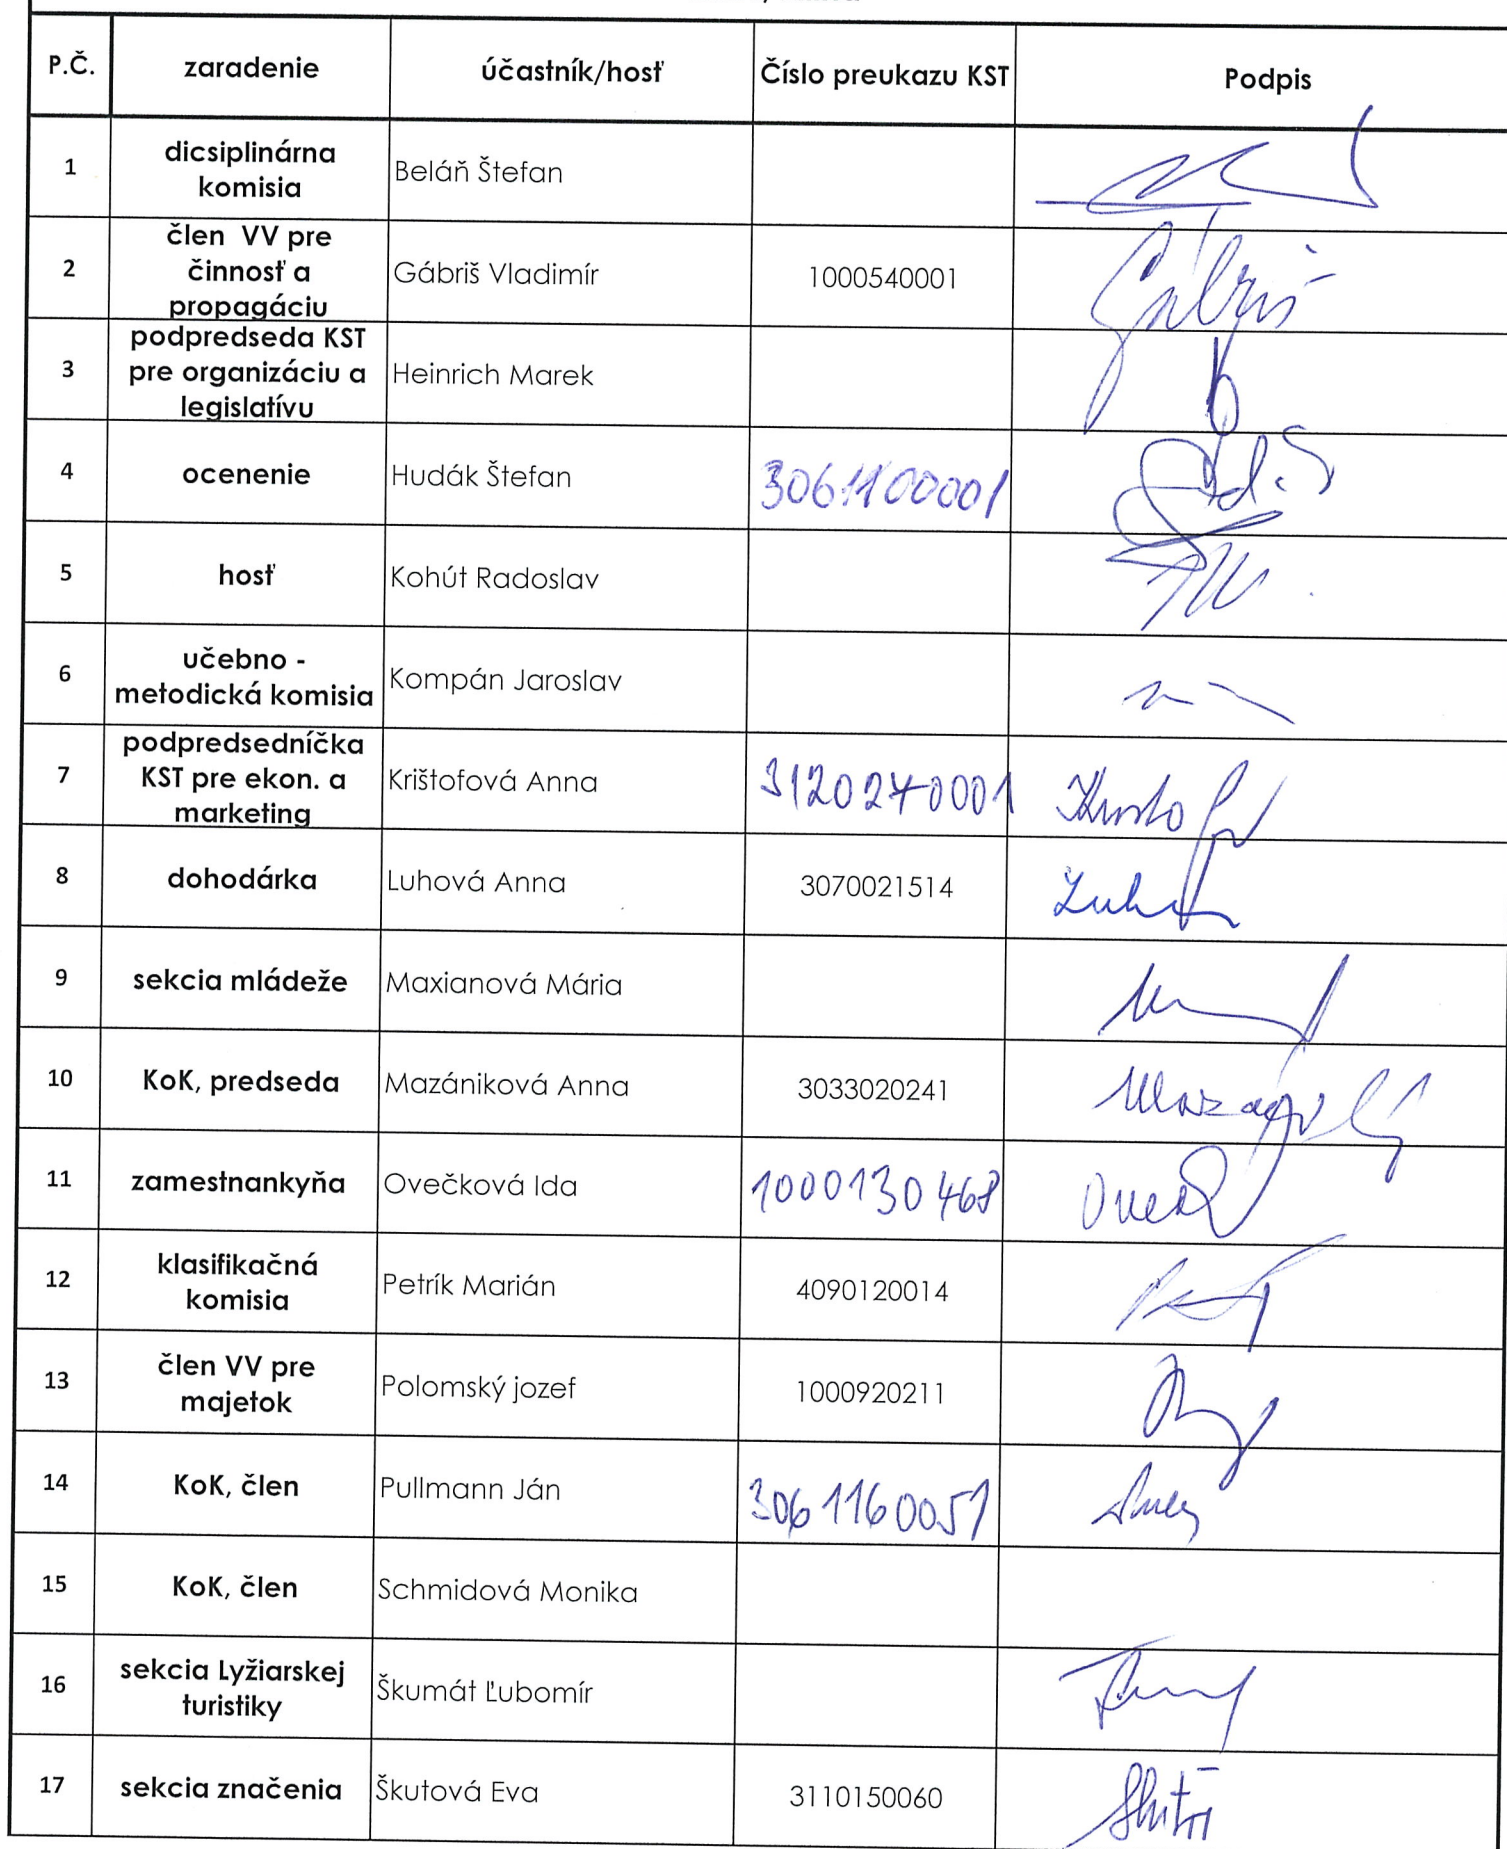 P.Č. zaradenie účastník/hosť Číslo preukazu KST Podpis
1 dicsiplinárna komisia Beláň Štefan
2 člen VV pre činnosť a propagáciu Gábriš Vladimír 1000540001 Gábriš
3 podpredseda KST pre organizáciu a legislatívu Heinrich Marek
4 ocenenie Hudák Štefan 3061100001
5 hosť Kohút Radoslav
6 učebno - metodická komisia Kompán Jaroslav
7 podpredsedníčka KST pre ekon. a marketing Krištofová Anna 3120270001
8 dohodárka Luhová Anna 3070021514
9 sekcia mládeže Maxianová Mária
10 KoK, predseda Mazániková Anna 3033020241
11 zamestnankyňa Ovečková Ida 1000130468
12 klasifikačná komisia Petrík Marián 4090120014
13 člen VV pre majetok Polomský jozef 1000920211
14 KoK, člen Pullmann Ján 3061160051
15 KoK, člen Schmidová Monika
16 sekcia Lyžiarskej turistiky Škumát Ľubomír
17 sekcia značenia Škutová Eva 3110150060